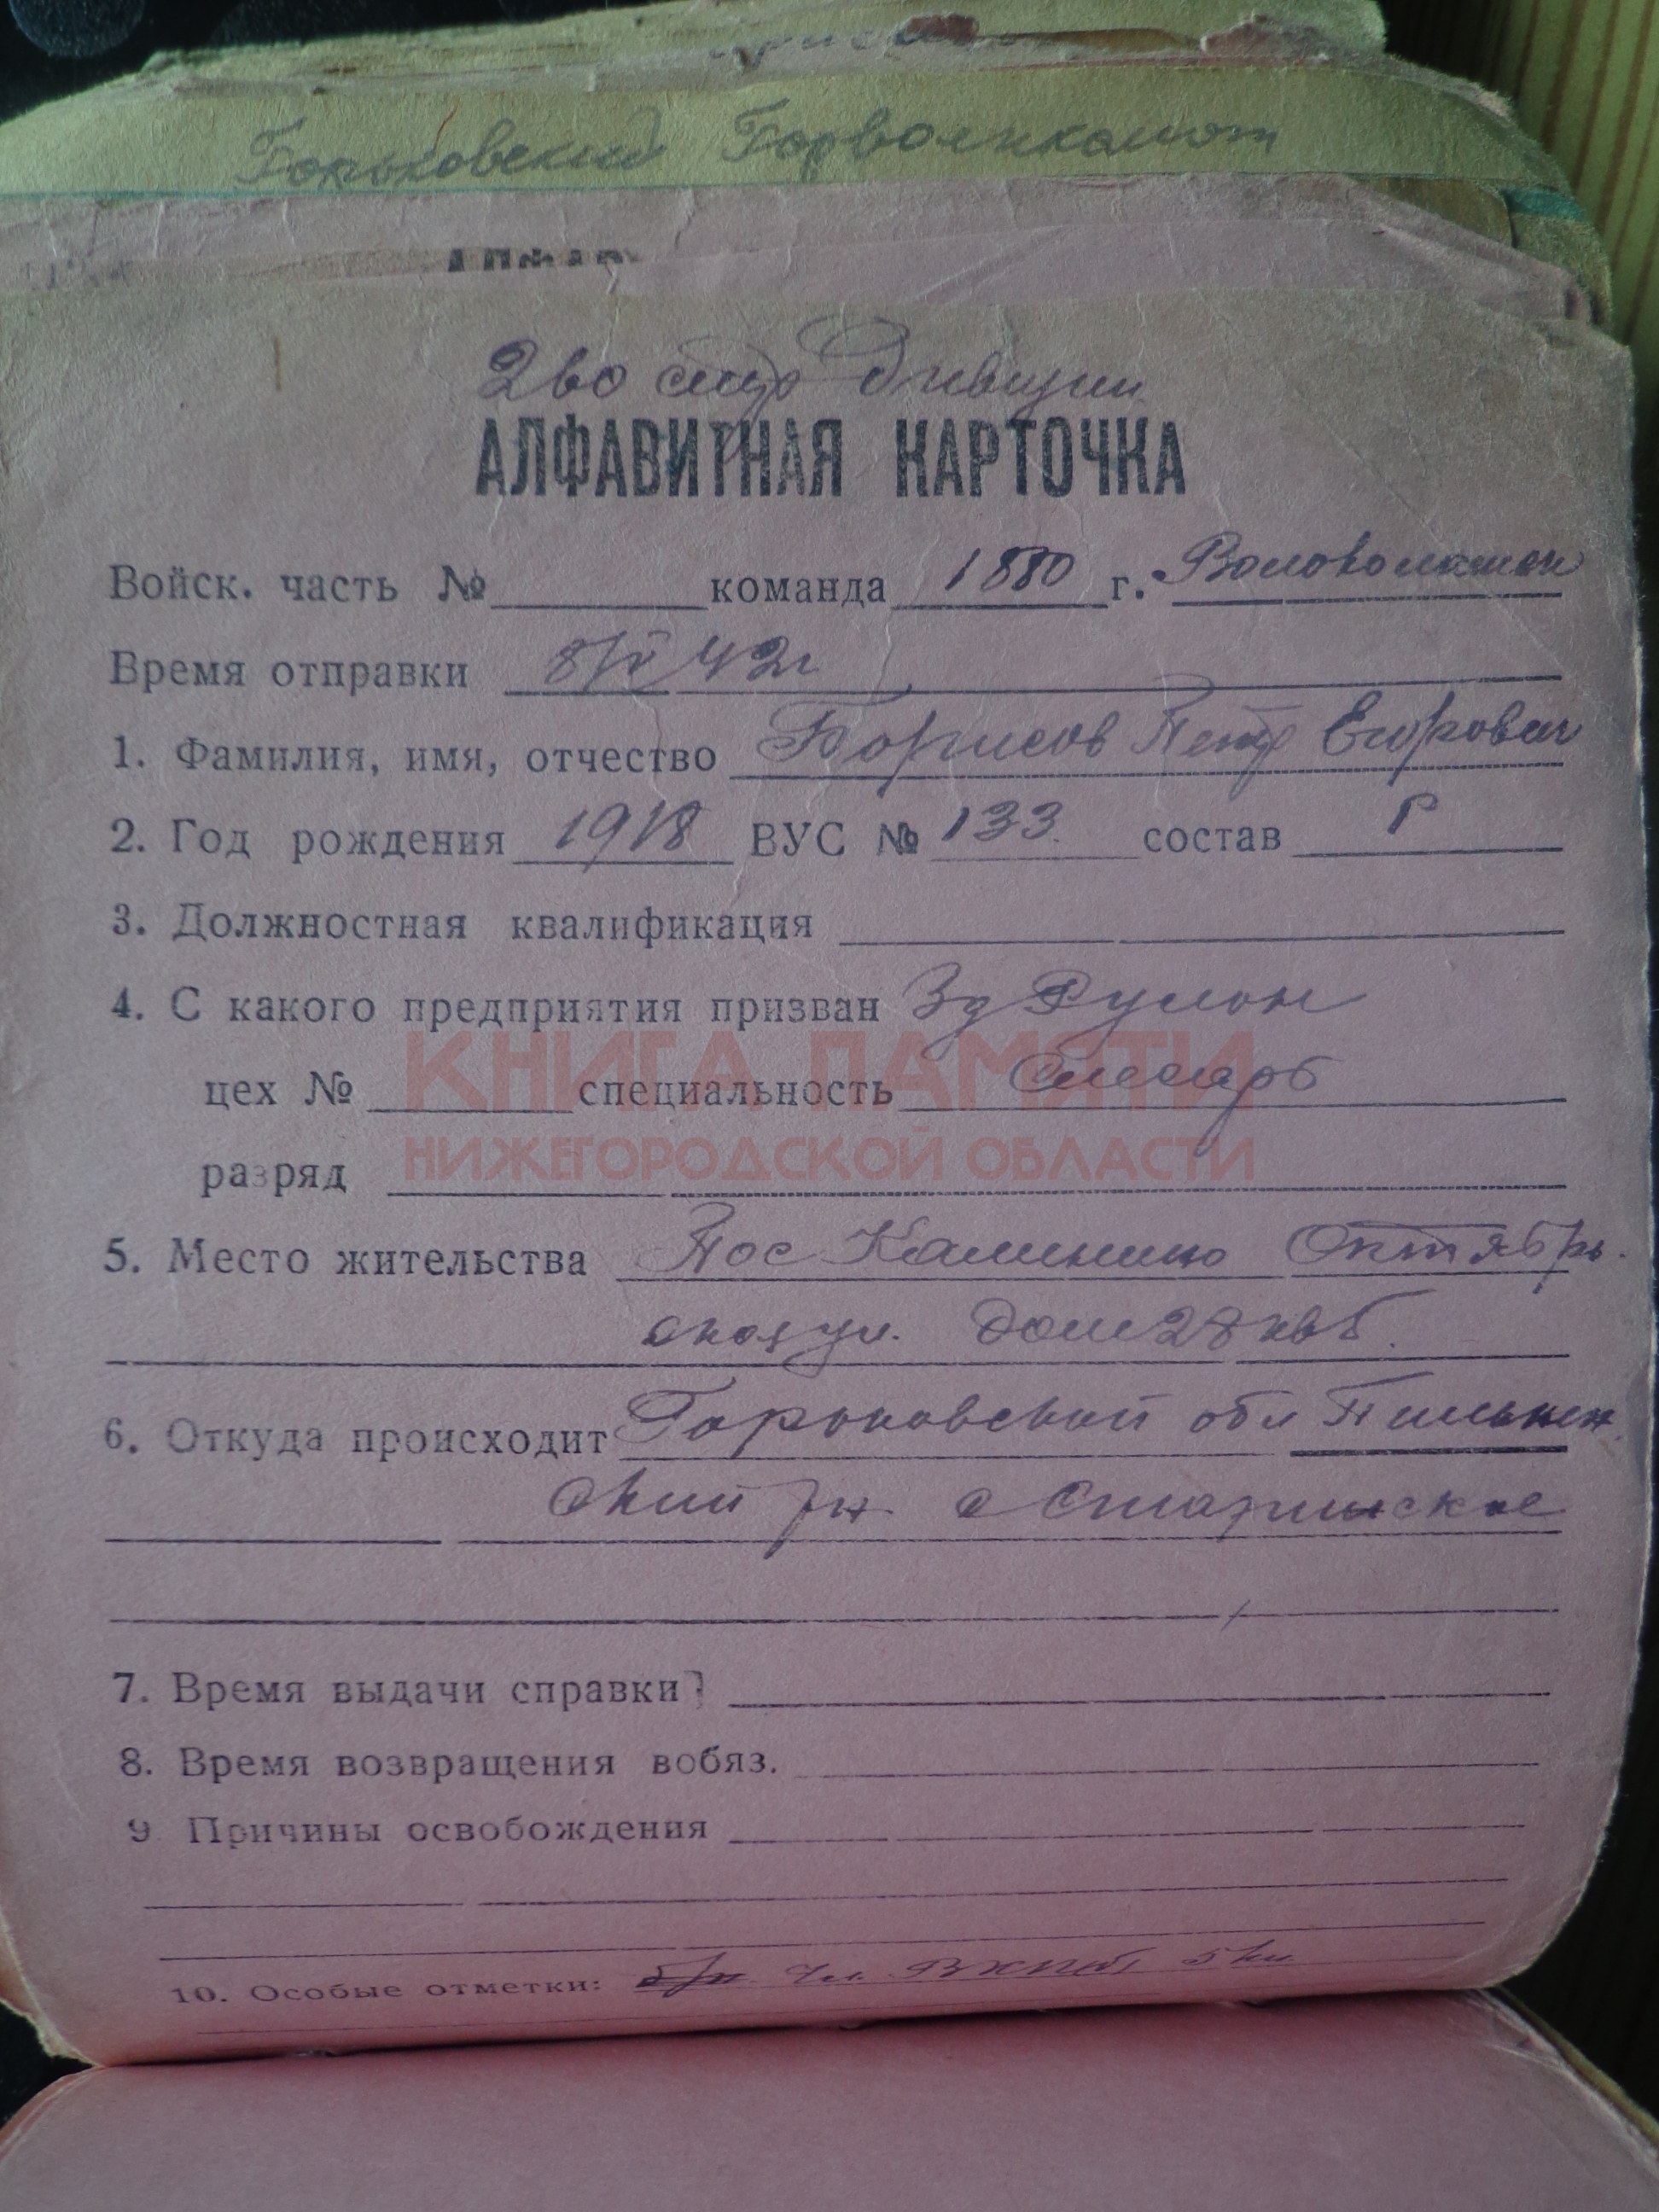 Горьковский Горвоенкомат
2во стр Дивизии
АЛФАВИТНАЯ КАРТОЧКА
Войск. часть № команда 1880 г. Волоколамск
Время отправки 42г
1. Фамилия, имя, отчество Борисов Петр Егорович
2. Год рождения 1918 ВУС № 133 состав Р
3. Должностная квалификация
4. С какого предприятия призван Зд
КНИГА ПАМЯТИ
цех № специальность Слесарь
НИЖЕГОРОДСКОЙ ОБЛАСТИ
разряд
5. Место жительства Пос Калинино Октябрь
ская ул. дом 28 кв 6.
6. Откуда происходит Горьковской обл Пильнен
ский рн с
7. Время выдачи справки
8. Время возвращения вобяз.
9 Причины освобождения
10. Особые отметки: Чл. ВКПб